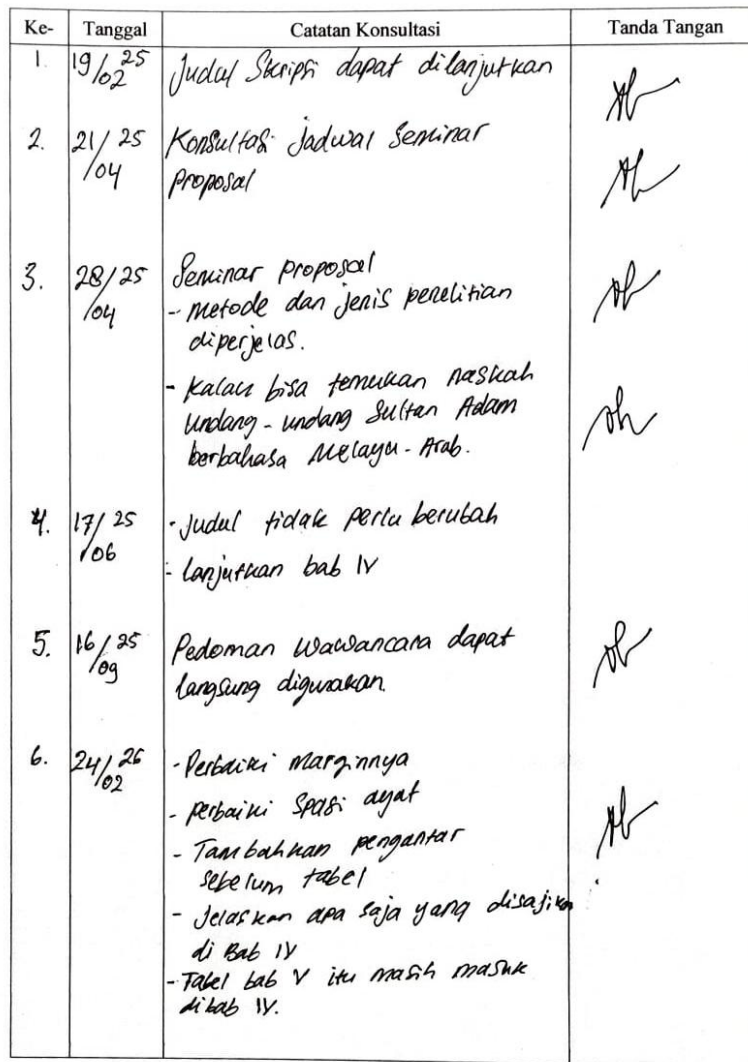 Ke- Tanggal Catatan Konsultasi Tanda Tangan
1. 19/02 25 Judul Skripsi dapat dilanjutkan
2. 21/04 25 Konsultasi Jadwal Seminar
proposal
3. 28/04 25 Seminar proposal
- metode dan jenis penelitian
diperjelas.
- kalau bisa temukan naskah
undang-undang Sultan Adam
berbahasa Melayu-Arab.
4. 17/06 25 - Judul tidak perlu berubah
- lanjutkan bab IV
5. 16/09 25 Pedoman wawancara dapat
langsung digunakan.
6. 24/02 26 - Perbaiki marginnya
- perbaiki spasi ayat
- Tambahkan pengantar
sebelum tabel
- Jelaskan apa saja yang disajikan
di Bab IV
- Tabel bab V itu masih masuk
di bab IV.